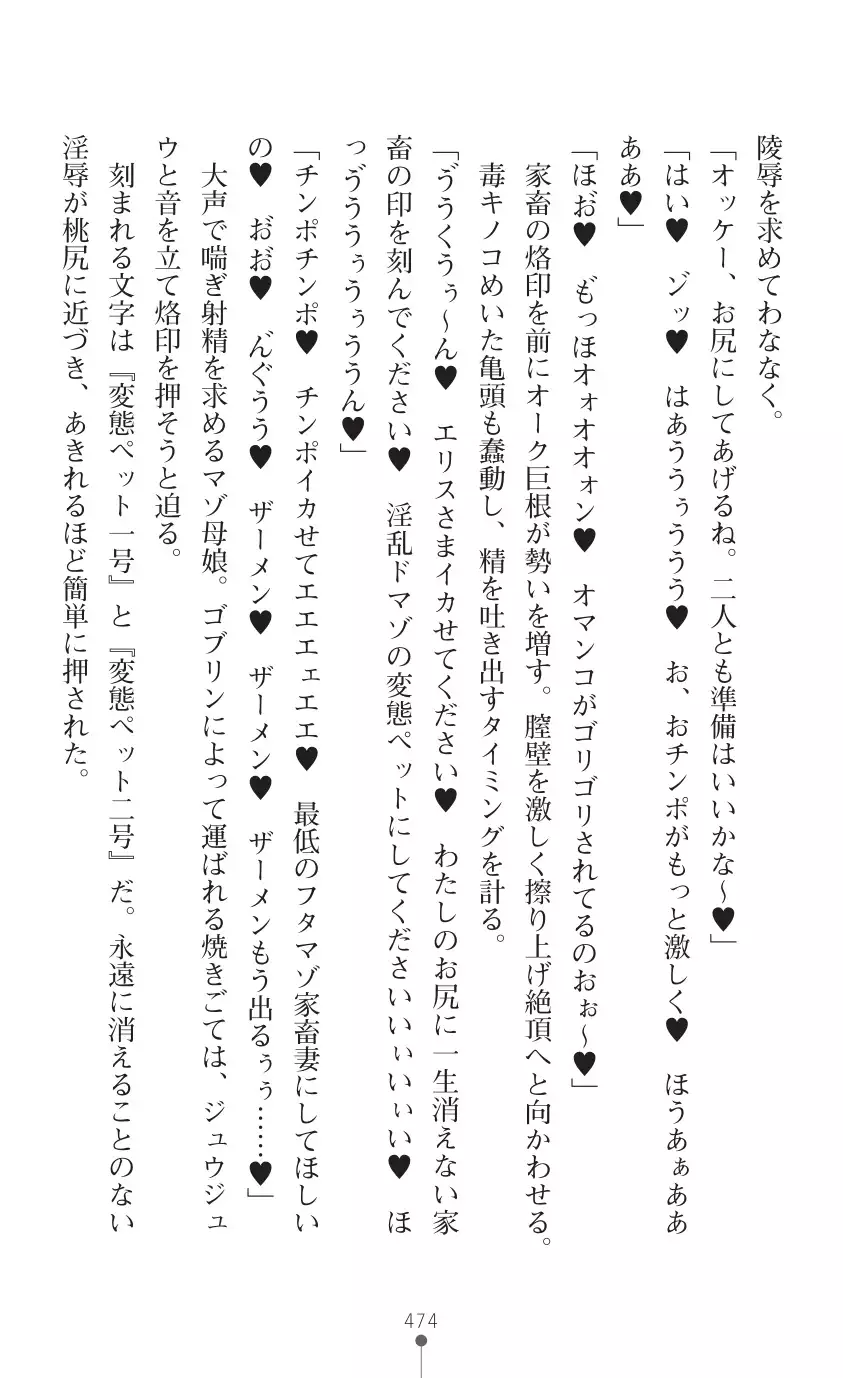 陵辱を求めてわななく。
「オッケー、お尻にしてあげるね。二人とも準備はいいかな～♥」
「はい♥　ゾッ♥　はあううぅううう♥　お、おチンポがもっと激しく♥　ほうあぁああ
ああ♥」
「ほお゙♥　も゙っほオォオオォン♥　オマンコがゴリゴリされてるのおぉ～♥」
　家畜の烙印を前にオーク巨根が勢いを増す。膣壁を激しく擦り上げ絶頂へと向かわせる。
　毒キノコめいた亀頭も蠢動し、精を吐き出すタイミングを計る。
「ゔうくうぅ～ん♥　エリスさまイカせてください♥　わたしのお尻に一生消えない家
畜の印を刻んでください♥　淫乱ドマゾの変態ペットにしてくださいいぃいぃい♥　ほ
っゔううぅうぅううん♥」
「チンポチンポ♥　チンポイカせてエエエェエエ♥　最低のフタマゾ家畜妻にしてほしい
の♥　お゙お゙♥　ん゙ぐうう♥　ザーメン♥　ザーメン♥　ザーメンもう出るぅぅ……♥」
　大声で喘ぎ射精を求めるマゾ母娘。ゴブリンによって運ばれる焼きごては、ジュウジュ
ウと音を立て烙印を押そうと迫る。
　刻まれる文字は『変態ペット一号』と『変態ペット二号』だ。永遠に消えることのない
淫辱が桃尻に近づき、あきれるほど簡単に押された。
474